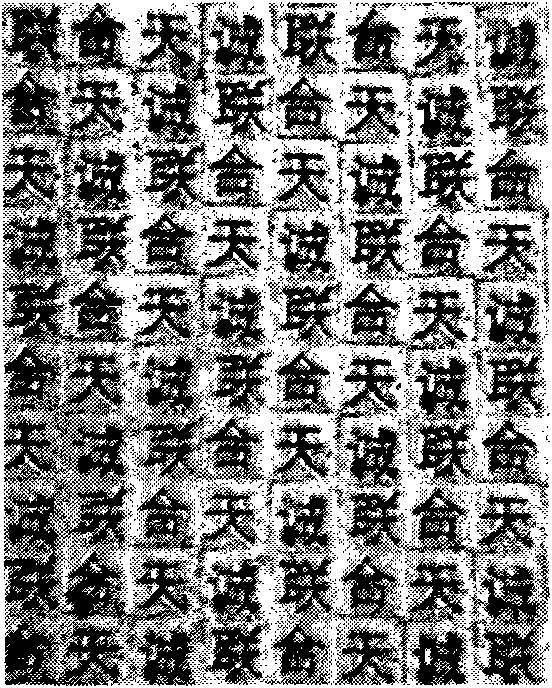 联合天诚联合天诚
合天诚联合天诚联
天诚联合天诚联合
诚联合天诚联合天
联合天诚联合天诚
合天诚联合天诚联
天诚联合天诚联合
诚联合天诚联合天
联合天诚联合天诚
合天诚联合天诚联